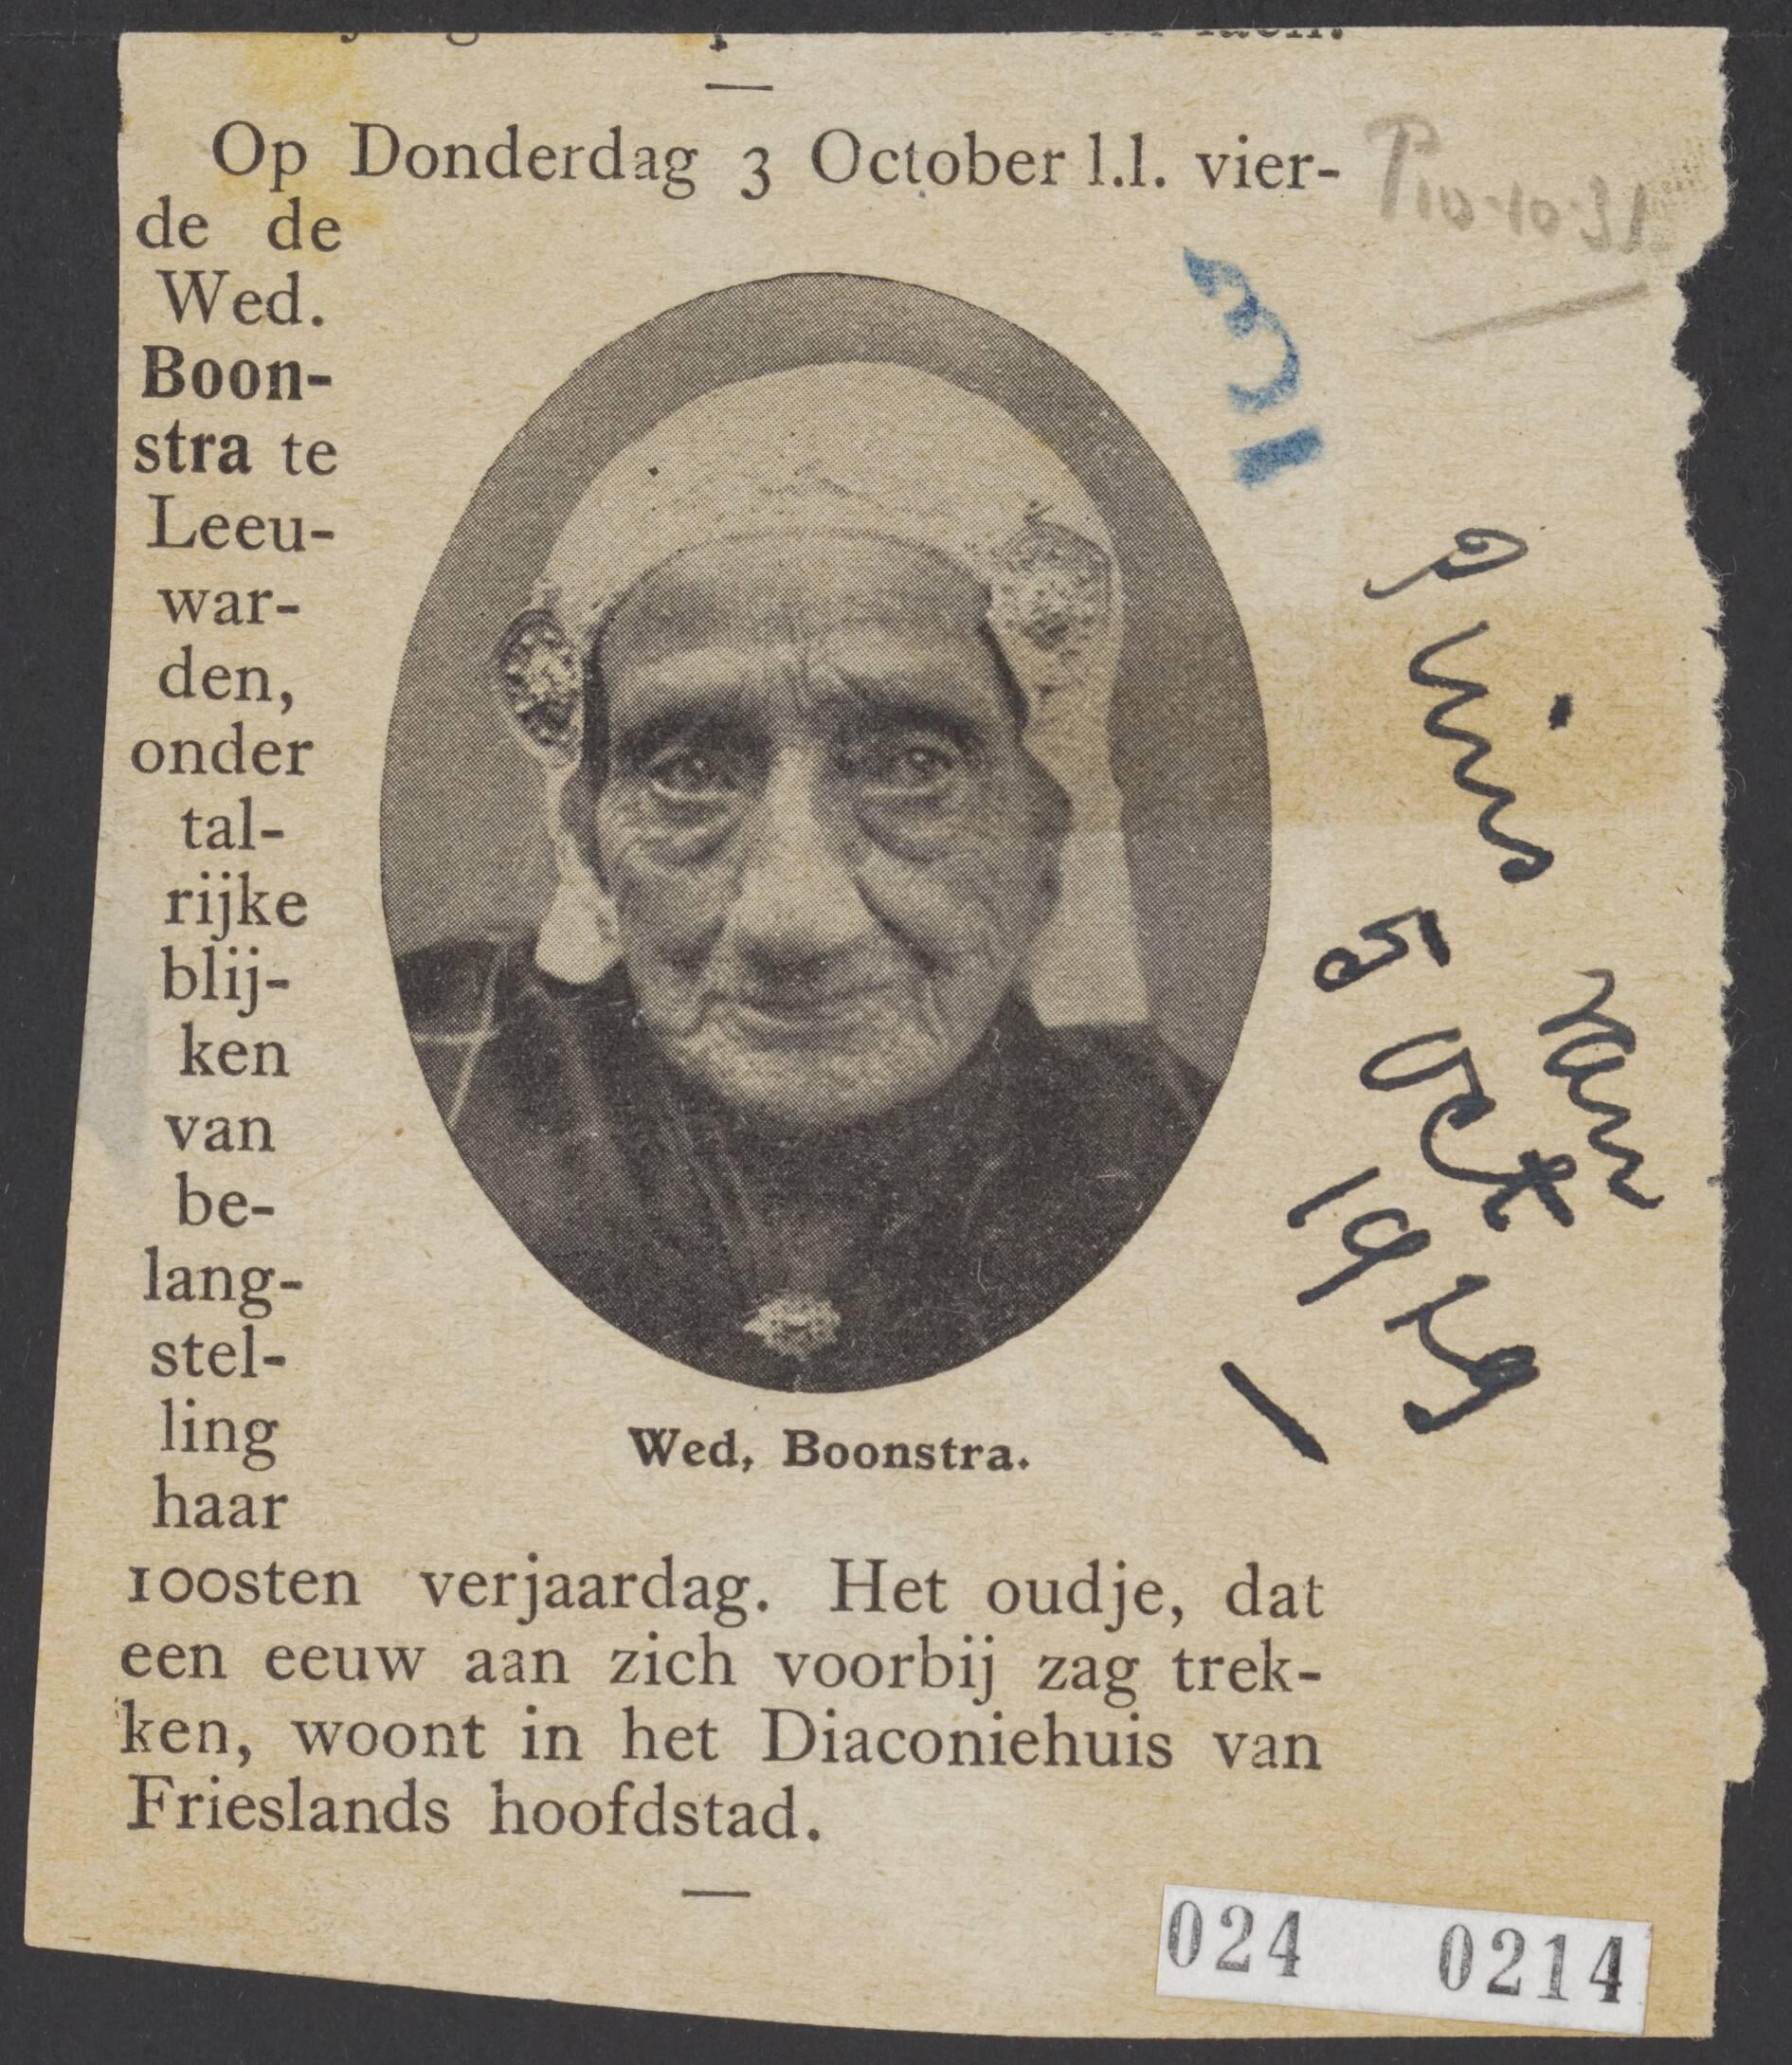 Op Donderdag 3 October l.l. vier-
de de
Wed.
Boon-
stra te
Leeu-
war-
den,
onder
tal-
rijke
blij-
ken
van
be-
lang-
stel-
ling
haar
100sten verjaardag. Het oudje, dat
een eeuw aan zich voorbij zag trek-
ken, woont in het Diaconiehuis van
Frieslands hoofdstad.
Wed. Boonstra.
van
5 Oct
1929
024 0214